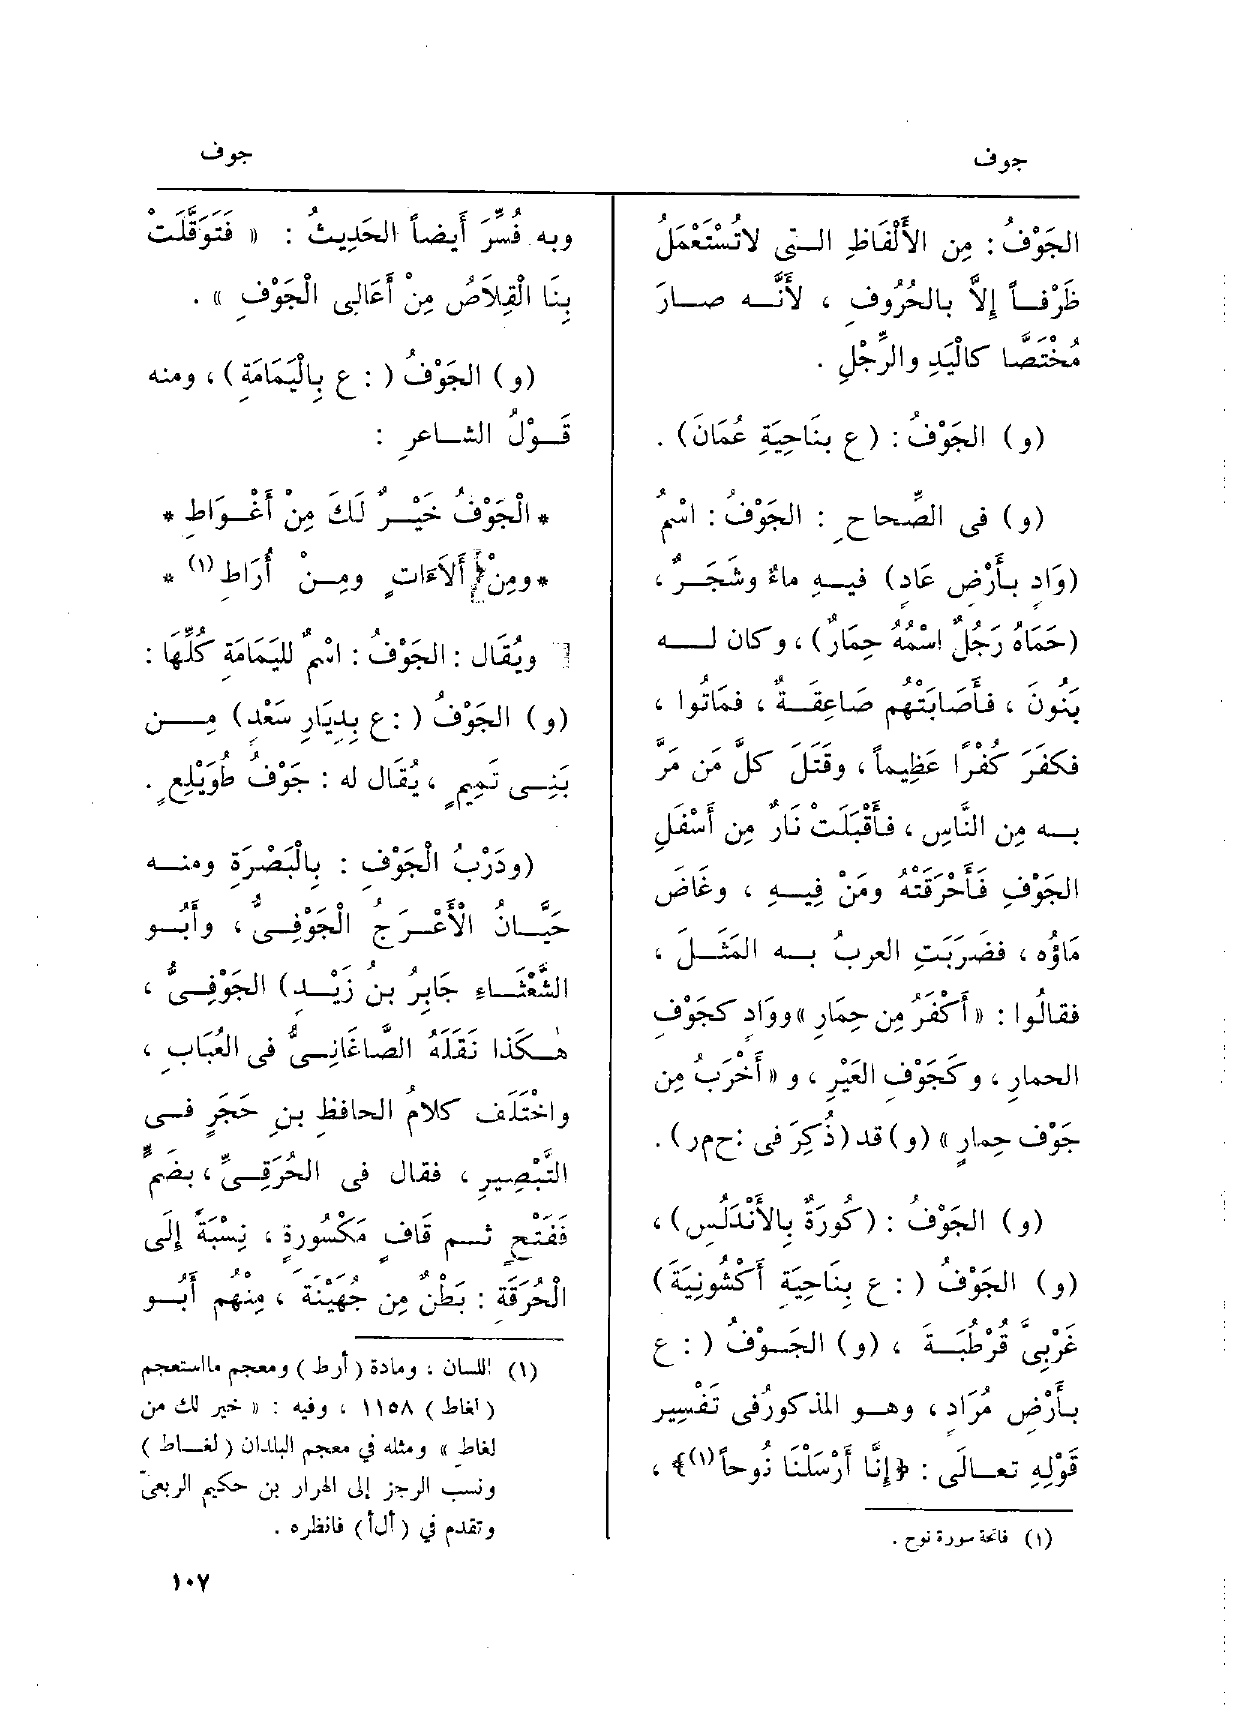 جوف
جوف
الجَوْفُ : مِن الأَلْفَاظِ التى لاتُسْتَعْمَلُ
ظَرْفاً إِلاَّ بالحُرُوفِ ، لأَنَّه صارَ
مُخْتَصًّا كالْيَدِ والرِّجْلِ .
(و) الجَوْفُ : (ع بنَاحِيَةِ عُمَانَ) .
(و) فى الصِّحاحِ : الجَوْفُ : اسْمُ
(وَادٍ بأَرْضِ عَادٍ) فيهِ ماءٌ وشَجَرٌ ،
(حَمَاهُ رَجُلٌ اسْمُهُ حِمَارٌ) ، وكان لـه
بَنُونَ ، فأَصَابَتْهُم صَاعِقَةٌ ، فمَاتُوا ،
فكَفَرَ كُفْرًا عَظِيماً ، وقَتَلَ كلَّ مَن مَرَّ
بـه مِن النَّاسِ ، فأَقْبَلَتْ نَارٌ مِن أَسْفَلِ
الجَوْفِ فأَحْرَقَتْهُ ومَنْ فِيهِ ، وغَاضَ
مَاؤُه ، فضَرَبَتِ العربُ بـه المَثَلَ ،
فقالُوا : « أَكْفَرُ مِن حِمَارٍ » ووَادٍ كجَوْفِ
الحمارِ ، وكجَوْفِ العَيْرِ ، و « أَخْرَبُ مِن
جَوْفِ حِمارٍ » (و) قد (ذُكِرَ فى : ح م ر) .
(و) الجَوْفُ : (كُورَةٌ بالأَنْدَلُسِ) ،
(و) الجَوْفُ ( : ع بنَاحِيَةِ أَكْشُونِيَةَ)
غَرْبِىَّ قُرْطُبَةَ ، (و) الجَوْفُ ( : ع
بأَرْضِ مُرَادٍ ، وهـو المذكورُ فى تَفْسِيرِ
قَوْلِهِ تعـالَى : ﴿إِنَّا أَرْسَلْنَا نُوحاً(١)﴾ ،
(١) فاتحة سورة نوح .
وبه فُسِّرَ أَيضاً الحَدِيثُ : « فَتَوَقَّلَتْ
بِنَا الْقِلاَصُ مِنْ أَعَالِى الْجَوْفِ » .
(و) الجَوْفُ ( : ع بِالْيَمَامَةِ) ، ومنه
قَـوْلُ الشاعرِ :
* الْجَوْفُ خَيْرٌ لَكَ مِنْ أَغْوَاطِ *
* ومِنْ أَلاَءَاتٍ ومِنْ أُرَاطِ (١) *
ويُقَال : الجَوْفُ : اسْمٌ للْيَمَامَةِ كُلِّهَا :
(و) الجَوْفُ ( : ع بِدِيَارِ سَعْدٍ) مِـن
بَنِـى تَمِيمٍ ، يُقَال له : جَوْفُ طُوَيْلِعٍ .
(ودَرْبُ الْجَوْفِ : بِالْبَصْرَةِ ومنـه
حَيَّـانُ الْأَعْرَجُ الْجَوْفِـىُّ ، وأَبُـو
الشَّعْثَـاءِ جَابِرُ بن زَيْـدٍ) الجَوْفِـىُّ ،
هـٰكذا نَقَلَهُ الصَّاغَانِىُّ فى العُبَابِ ،
واخْتَلَفَ كلامُ الحافظِ بنِ حَجَرٍ فـى
التَّبْصِيرِ ، فقال فى الحُرَقِـىِّ ، بضَمٍّ
فَفَتْحٍ ثـم قَافٍ مَكْسُورةٍ ، نِسْبَةً إِلَى
الْحُرَقَةِ : بَطْنٌ مِن جُهَيْنَةَ ، مِنْهُم أَبُـو
(١) اللسان ، ومادة (أرط) ومعجم مااستعجم
(لغاط) ١١٥٨ ، وفيه : « خير لك من
لغاط » ومثله في معجم البلدان (لغـاط)
ونسب الرجز إلى الهرار بن حكيم الربعىّ
وتقدم في (ألأ) فانظره .
١٠٧